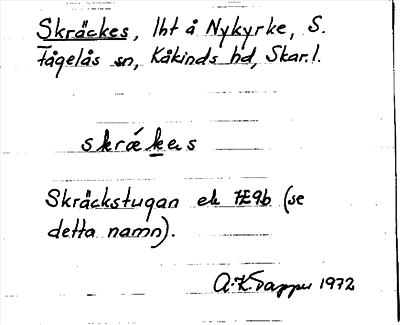 Skräckes, lht å Nykyrke, S.
Fågelås sn, Kåkinds hd, Skar.l.
skrækəs
Skräckstugan ek 7E9b (se
detta namn).
A.K. 1972